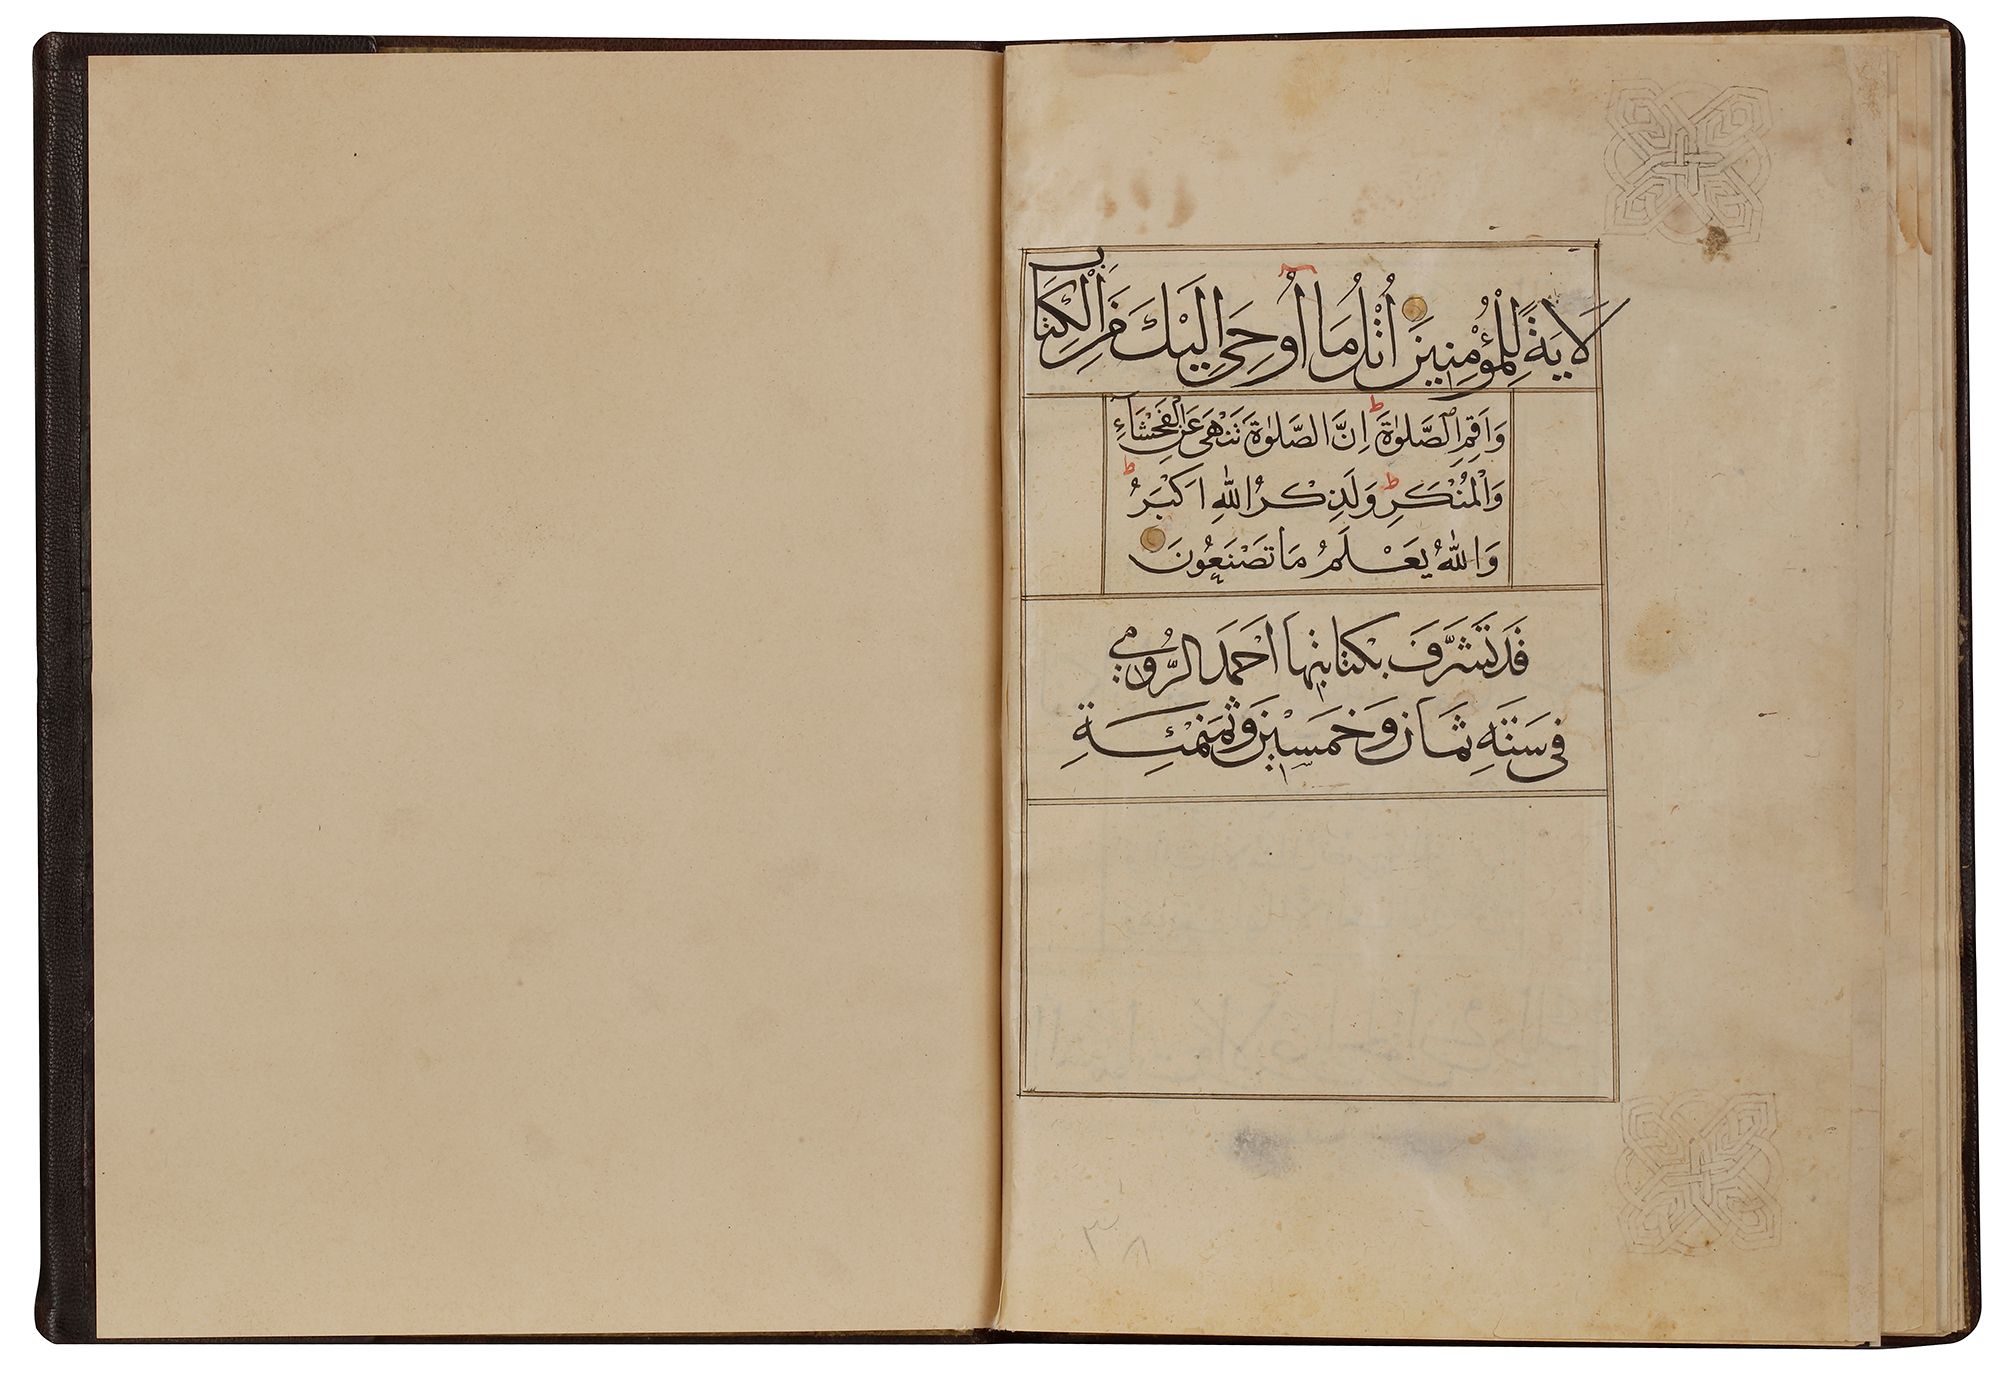 لَاٰيَةً لِلْمُؤْمِنِينَ اُتْلُ مَا اُوحِيَ اِلَيْكَ مِنَ الْكِتَابِ
وَاَقِمِ الصَّلٰوةَ ط اِنَّ الصَّلٰوةَ تَنْهٰى عَنِ الْفَحْشَآءِ
وَالْمُنْكَرِ ط وَلَذِكْرُ اللّٰهِ اَكْبَرُ ط
وَاللّٰهُ يَعْلَمُ مَا تَصْنَعُونَ
قَدْ تَشَرَّفَ بِكِتَابَتِهَا اَحْمَدُ الرُّومِي
فِي سَنَةِ ثَمَانٍ وَخَمْسِينَ وَثَمَنْمِئَةِ
٣٨